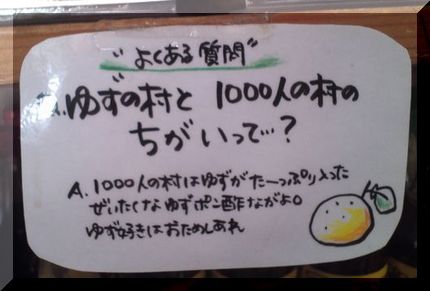 "よくある質問"
Q.ゆずの村と 1000人の村の
ちがいって…?
A.1000人の村はゆずがたーっぷり入った
ぜいたくなゆずポン酢ながよ。
ゆず好きはおためしあれ